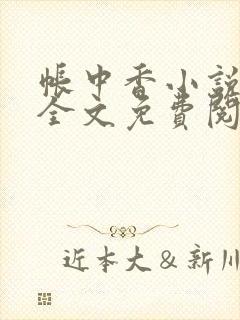 帳中香小說
全文免費閱
近本大＆新川